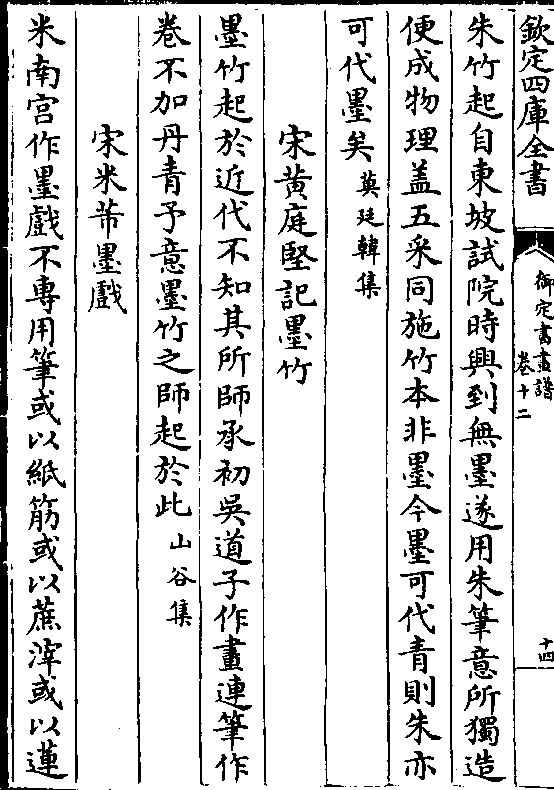 欽定四庫全書
御定書畫譜
卷十二
十四
朱竹起自東坡試院時興到無墨遂用朱筆意所獨造
便成物理盖五采同施竹本非墨今墨可代青則朱亦
可代墨矣莫廷韓集
宋黄庭堅記墨竹
墨竹起於近代不知其所師承初吳道子作畫連筆作
卷不加丹青予意墨竹之師起於此山谷集
宋米芾墨戲
米南宫作墨戲不專用筆或以紙筋或以蔗滓或以蓮